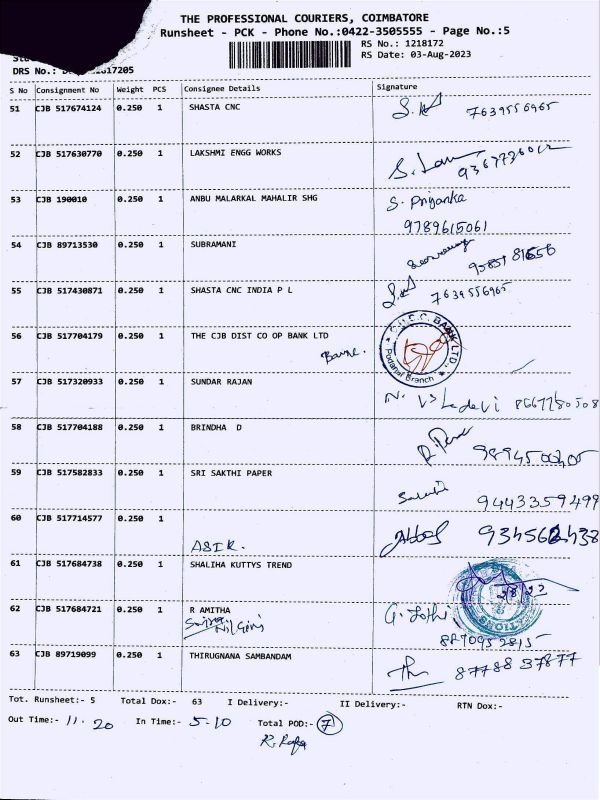 THE PROFESSIONAL COURIERS, COIMBATORE
Runsheet - PCK - Phone No.:0422-3505555 - Page No.:5
RS No.: 1218172
RS Date: 03-Aug-2023
DRS No.: 17205
S No Consignment No Weight PCS Consignee Details Signature
51 CJB 517674124 0.250 1 SHASTA CNC 7639556965
52 CJB 517630770 0.250 1 LAKSHMI ENGG WORKS
53 CJB 190010 0.250 1 ANBU MALARKAL MAHALIR SHG S. Priyanka
9789615061
54 CJB 89713530 0.250 1 SUBRAMANI
55 CJB 517430871 0.250 1 SHASTA CNC INDIA P L 7639556965
56 CJB 517704179 0.250 1 THE CJB DIST CO OP BANK LTD
BANK LTD., Podanur Branch
57 CJB 517320933 0.250 1 SUNDAR RAJAN
58 CJB 517704188 0.250 1 BRINDHA D
59 CJB 517582833 0.250 1 SRI SAKTHI PAPER
9443359499
60 CJB 517714577 0.250 1
ASIR.
61 CJB 517684738 0.250 1 SHALIHA KUTTYS TREND
62 CJB 517684721 0.250 1 R AMITHA G. Jothi
8870952815
63 CJB 89719099 0.250 1 THIRUGNANA SAMBANDAM 87788 37877
Tot. Runsheet:- 5 Total Dox:- 63 I Delivery:- II Delivery:- RTN Dox:-
Out Time:- 11.20 In Time:- 5-10 Total POD:- 7